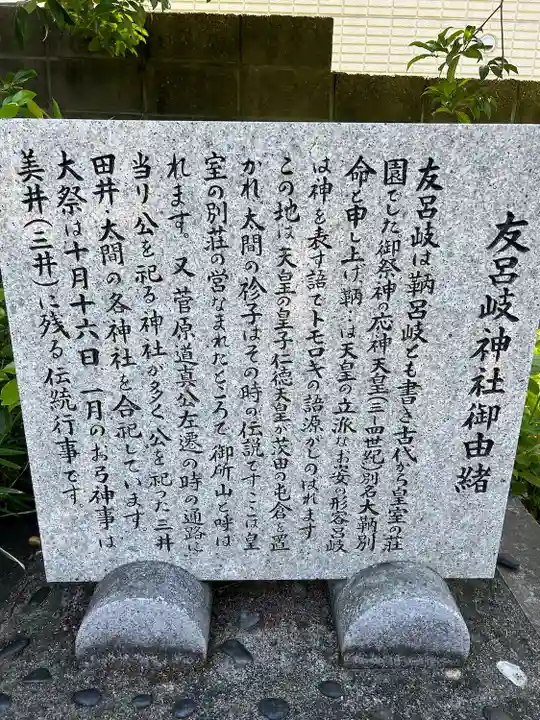 友呂岐神社御由緒
友呂岐は鞆呂岐とも書き古代から皇室の荘
園でした御祭神の応神天皇(三-四世紀)別名大鞆別
命と申し上げ、鞆…は天皇の立派なお姿の形容呂岐
は神を表す語でトモロキの語源がしのばれます
この地は天皇の皇子仁徳天皇が茨田の屯倉を置
かれ、太間の衫子はその時の伝説です。ここは皇
室の別荘の営なまれたところで御所山と呼ば
れます。又菅原道真公左遷の時の通路に
当り公を祀る神社が多く、公を祀った三井
田井・太間の各神社を合祀しています
大祭は十月十六日 一月のお弓神事は
美井(三井)に残る伝統行事です。